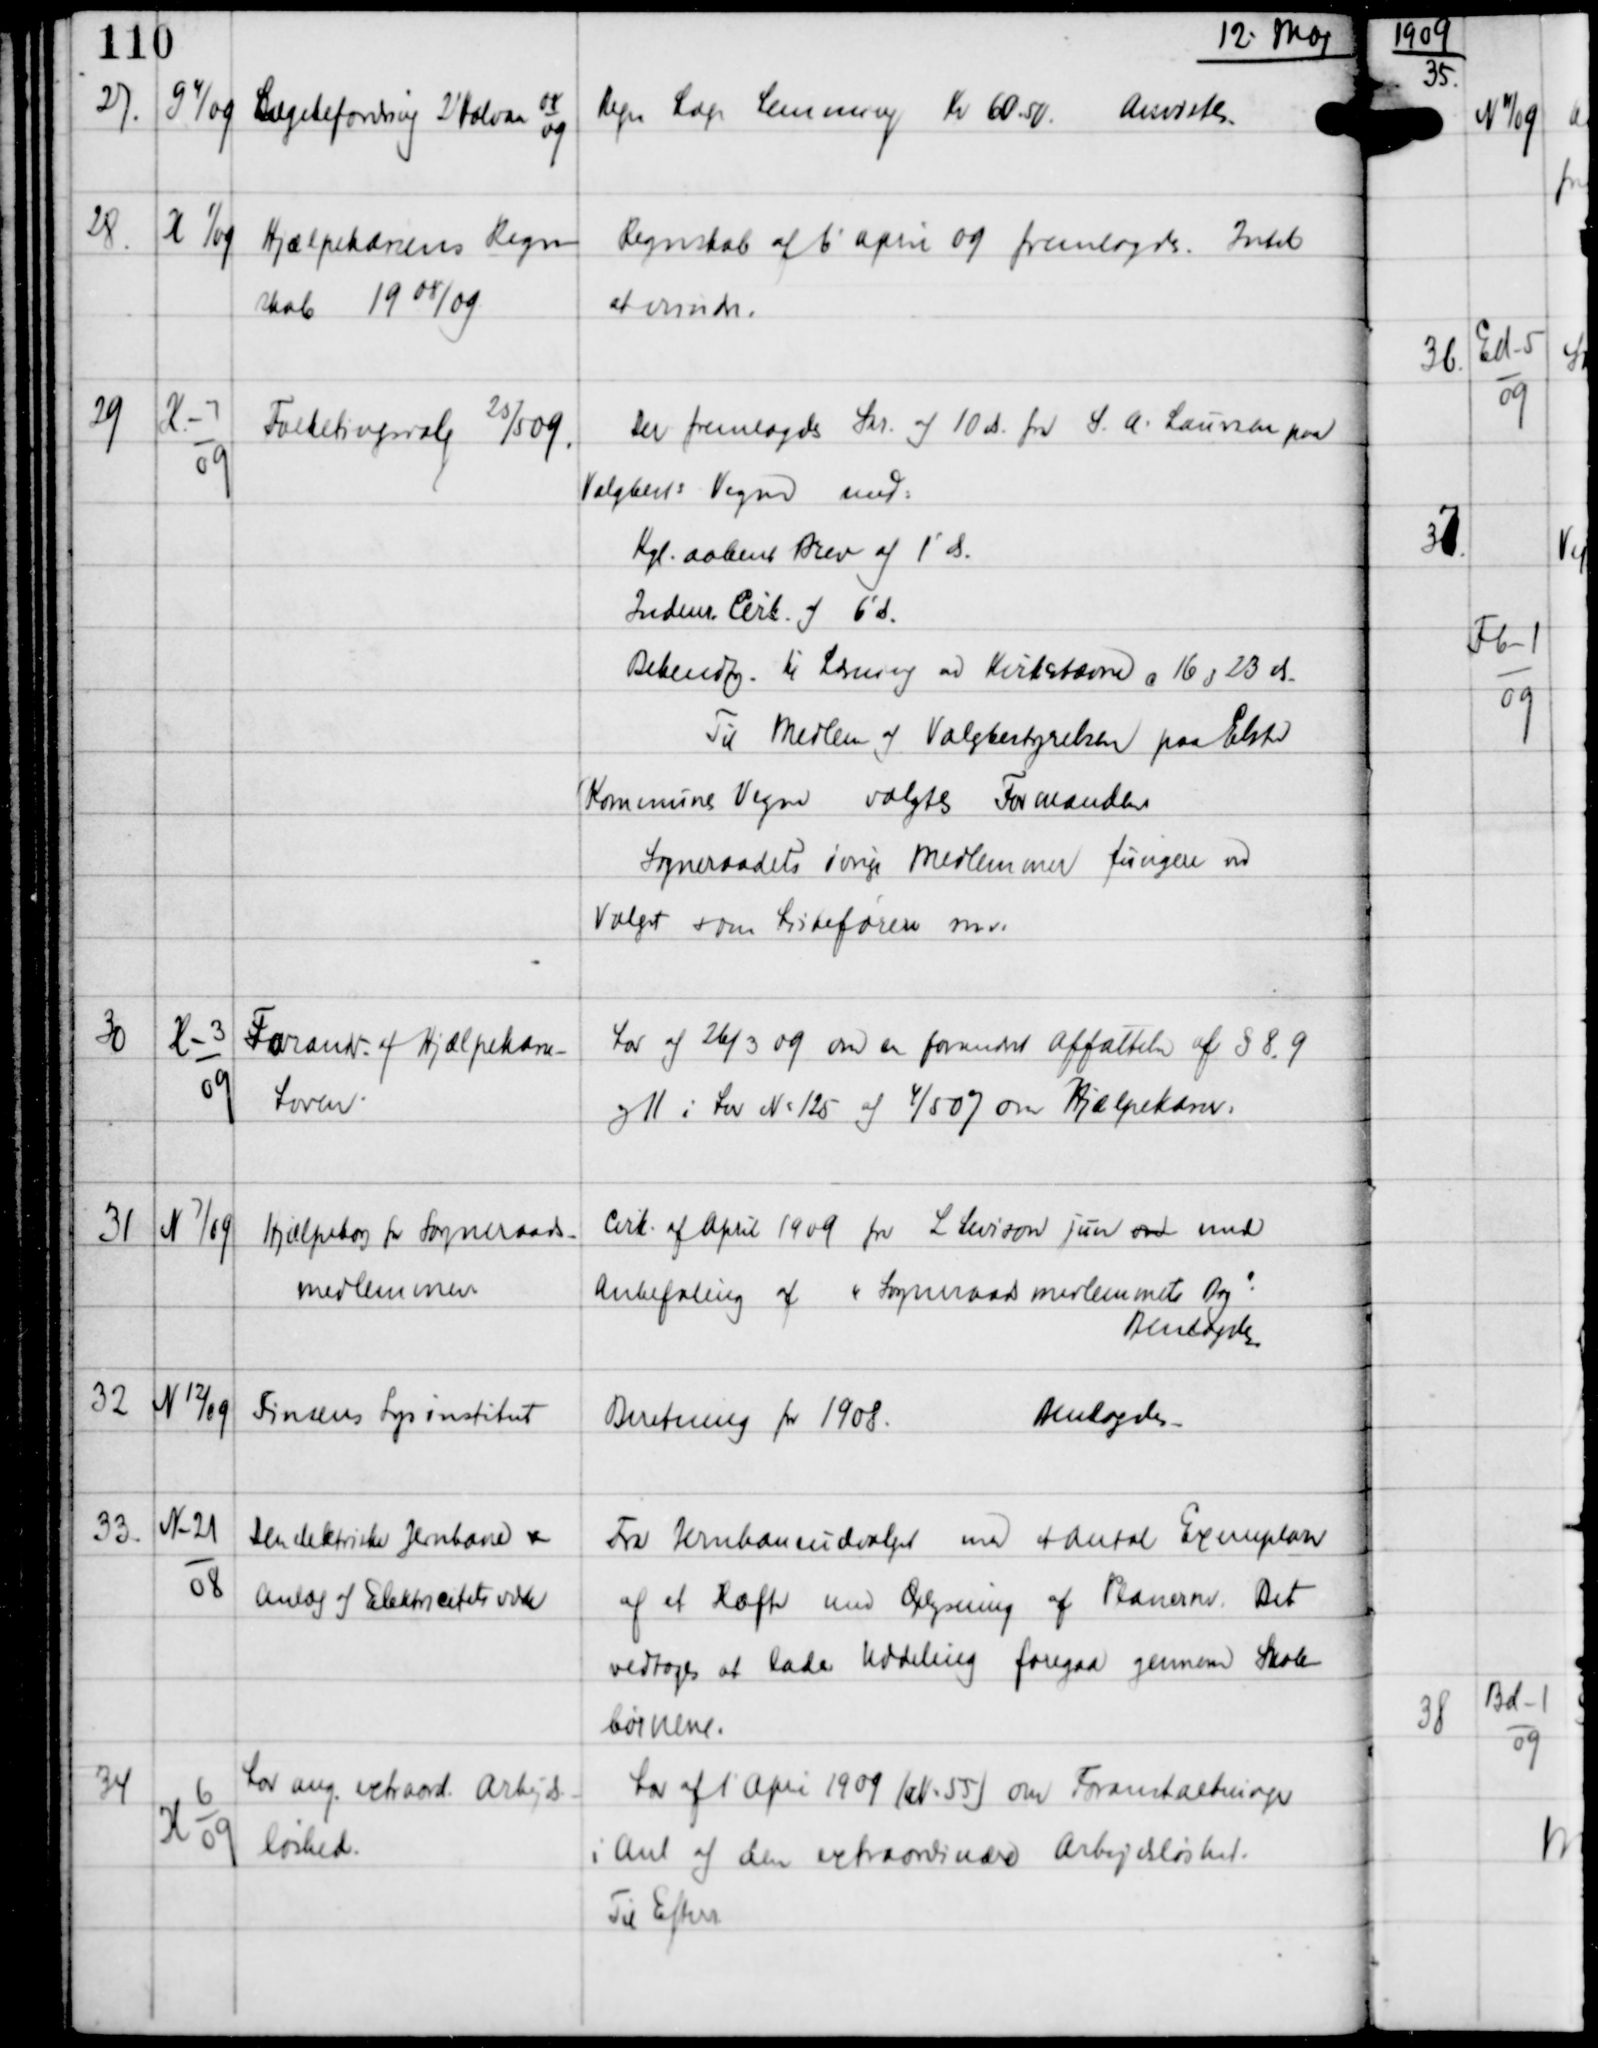 110
12. Maj
1909
27. G 4/09 Lægebefordring 2' Halvaar 08/09 Regn Læge Lemming Kr 60.50. Anvistes.
28. H 1/09 Hjælpekassens Regn Regnskab af 6' april 09 fremlagdes. Intet
skab 1908/09 at erindre.
29 H-7/09 Folketingsvalg 25/5 09. Der fremlagdes Skr. af 10 ds. fra S. A. Laursen paa
Valgbest's Vegne med:
Kgl. aabent Brev af 1' ds.
Indenr. Cirk. af 6' ds.
Bekendtg. til Læsning ved Kirkestævne d 16 & 23 ds.
Til Medlem af Valgbestyrelsen paa Elsted
Kommunes Vegne valgtes Formanden
Sogneraadets øvrige Medlemmer fungere ved
Valget som Listeførere mv.
30 H-3/09 Forandr. af Hjælpekasse- Lov af 26/3 09 om en forandret Affattelse af § 8. 9
Loven. og 11 i Lov No 125 af 4/5 07 om Hjælpekasser.
31 N 7/09 Hjælpebog for Sogneraads- Cirk. af April 1909 fra L Levison jun med
medlemmer. Anbefaling af "Sogneraadsmedlemmets Bog".
Henlagdes
32 N 12/09 Finsens Lysinstitut Beretning for 1908. Henlagdes
33. N-21/08 Den elektriske Jernbane & Fra Jernbaneudvalget med et Antal Exemplarer
Anlæg af Elektricitetsværk af et Hæfte med Oplysning af Planerne. Det
vedtoges at lade Uddeling foregaa gennem Skole
børnene.
34 H 6/09 Lov ang. extraord. Arbejds- Lov af 1' April 1909 (No 55) om Foranstaltninger
løshed. i Anl af den extraordinære Arbejdsløshed.
Til Efterr
35.
N 11/09
36. Ed-5/09
37.
Fb-1/09
38 Bd-1/09